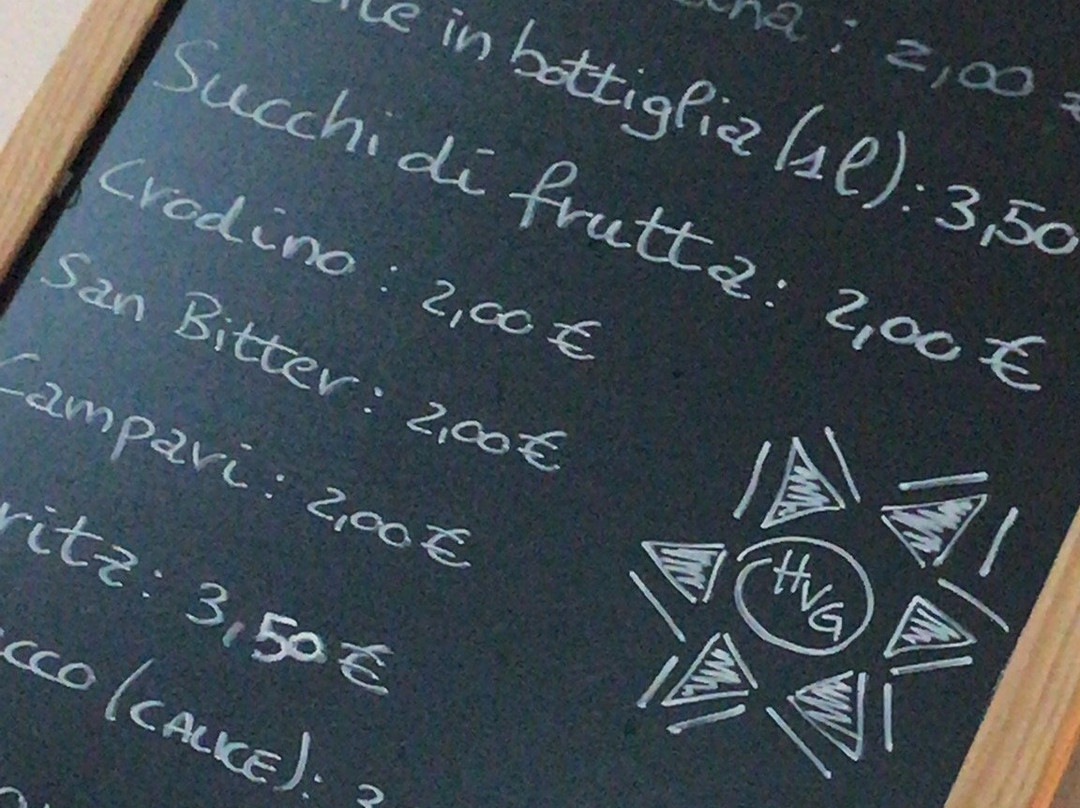 : 2,00
in bottiglia (1l): 3,50
Succhi di frutta: 2,00 €
Crodino: 2,00 €
San Bitter: 2,00 €
Campari: 2,00 €
ritz: 3,50 €
cco (CALICE):
HVG